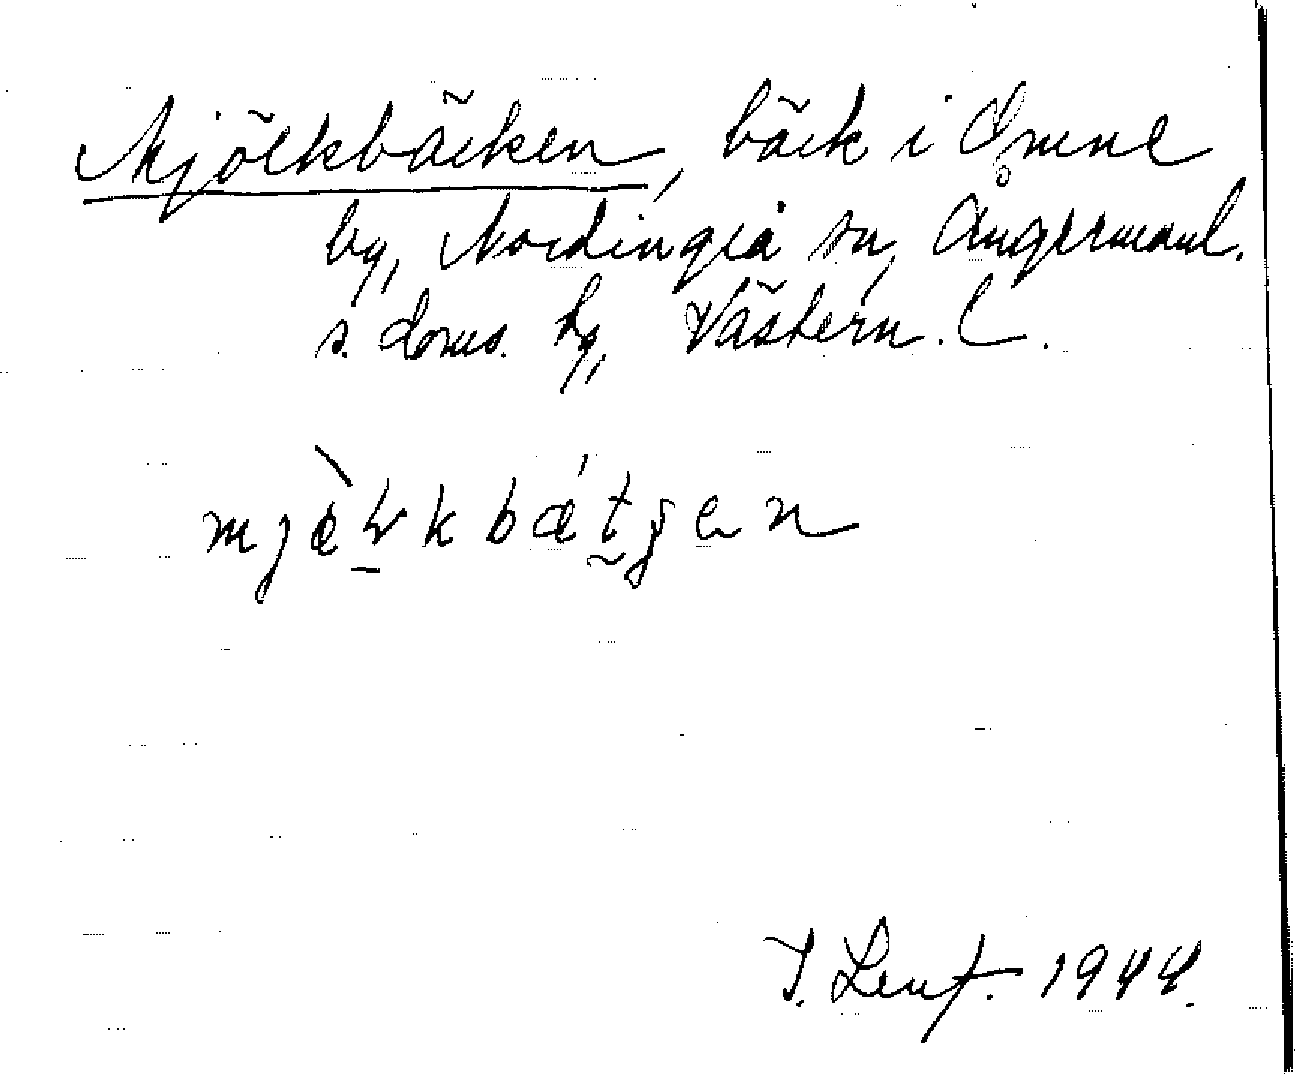 Mjölkbäcken, bäck i Omne
by, Nordingrå sn, Ångermanl.
s. doms. hg, Västern. L.
mjɵ̀lkbǽtjen
1944.